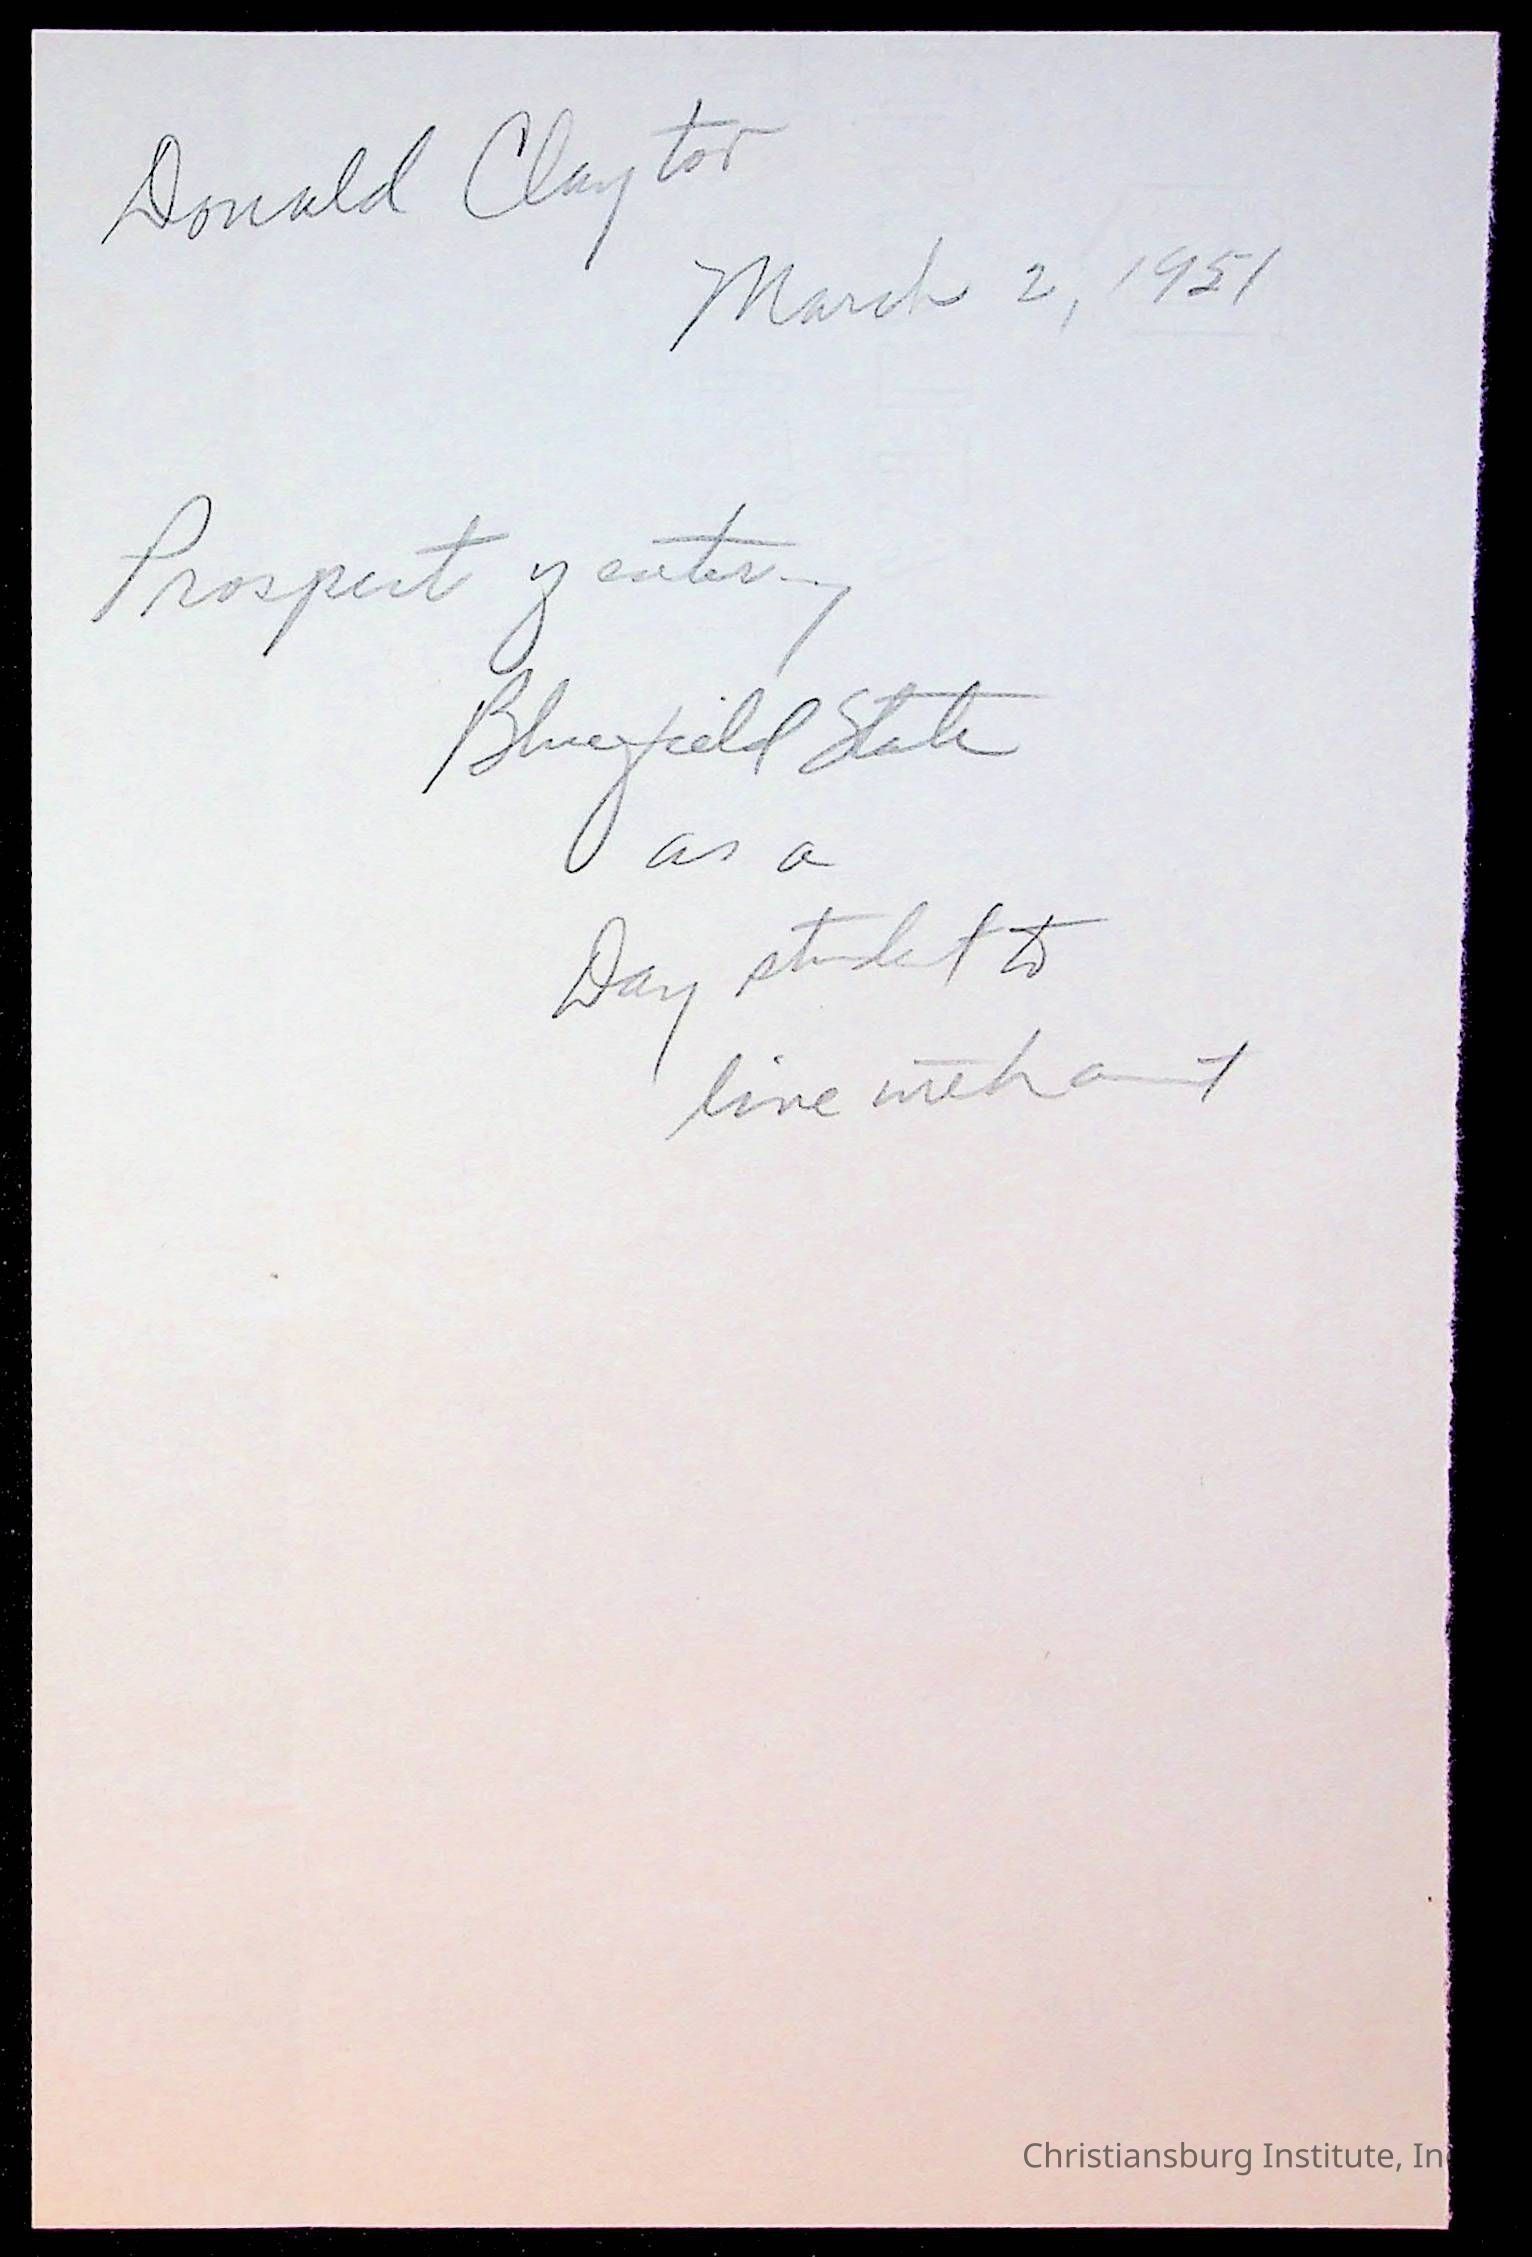 Donald Claytor
March 2, 1951
Prospect of entering
Bluefield State
as a
Day student to
live with aunt
Christiansburg Institute, In